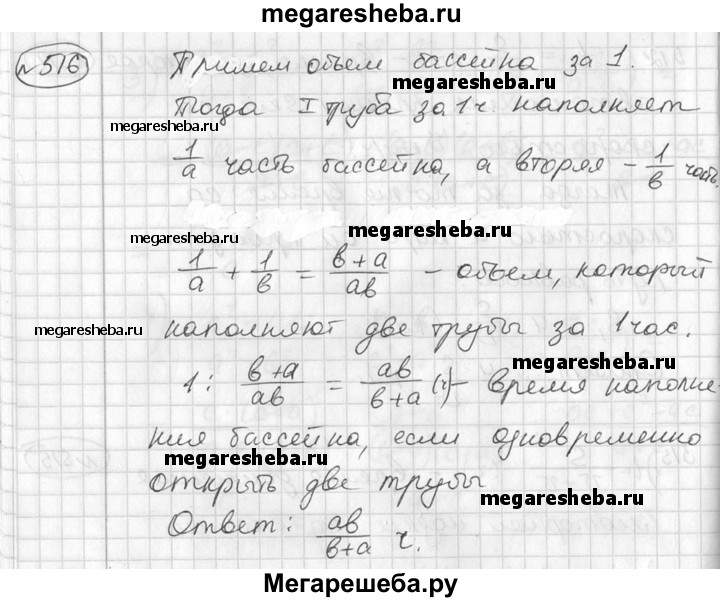 megaresheba.ru
№516 Примем объем бассейна за 1.
megaresheba.ru
Тогда I труба за 1ч. наполняет
megaresheba.ru
1/a часть бассейна, а вторая – 1/b часть.
megaresheba.ru megaresheba.ru
1/a + 1/b = (b+a)/ab – объем, который
megaresheba.ru наполняют две трубы за 1 час.
megaresheba.ru
1 : (b+a)/ab = ab/(b+a) (ч) – время наполне-
ния бассейна, если одновременно
megaresheba.ru
открыть две трубы
megaresheba.ru
Ответ: ab/(b+a) ч.
Мегарешеба.ру